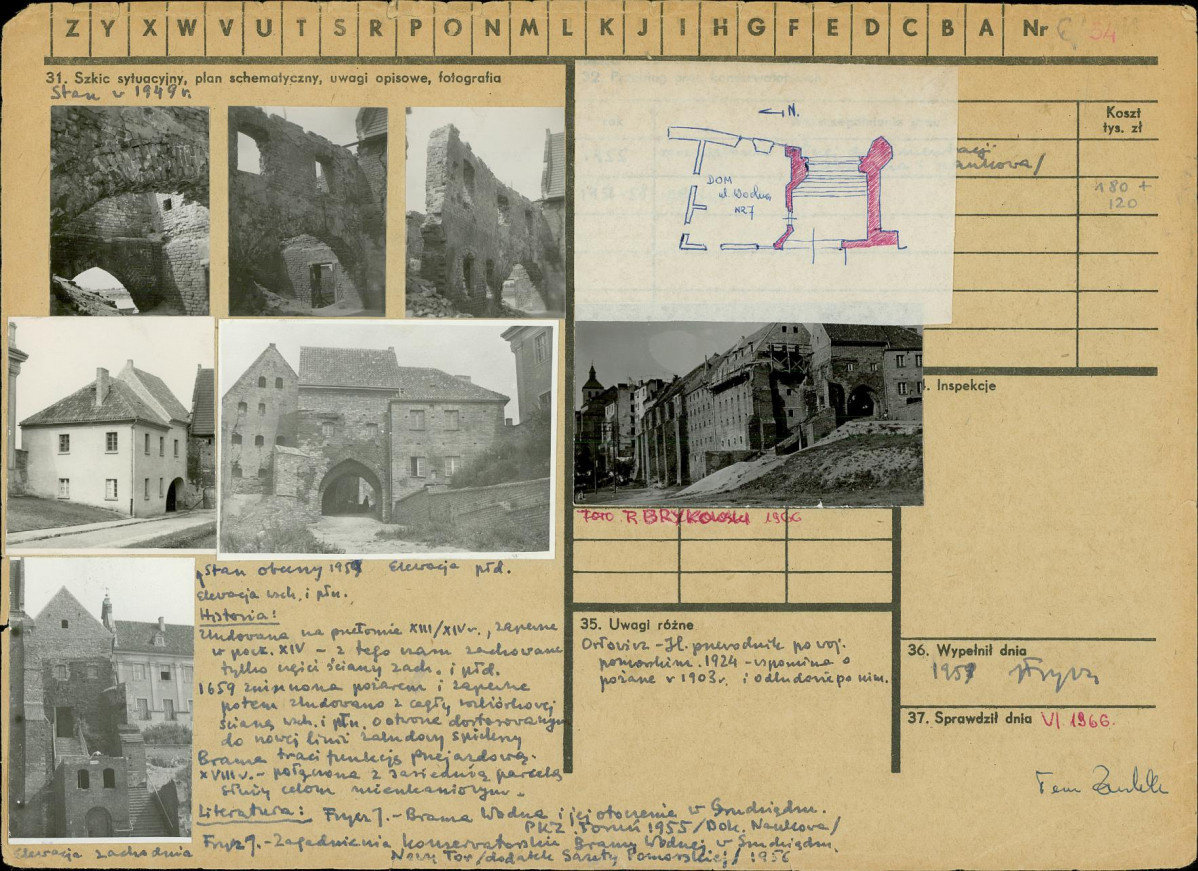 Z Y X W V U T S R P O N M L K J I H G F E D C B A Nr 54
31. Szkic sytuacyjny, plan schematyczny, uwagi opisowe, fotografia
Stan w 1949 r.
N.
DOM
ul. Wodna
NR 7
Koszt
tys. zł
180 +
120
Inspekcje
Foto R. BRYKOWSKI 1966
Stan obecny 1959 Elewacja płd.
Elewacja wsch. i płn.
Historia:
Zbudowana na przełomie XIII/XIV w., zapewne
w pocz. XIV – z tego nam zachowane
tylko części ściany zach. i płd.
1659 zniszczona pożarem i zapewne
potem zbudowano z cegły rozbiórkowej
ścianę wsch. i płn. o otworze dostosowanym
do nowej linii zabudowy
Brama traci funkcję przejazdową.
XVIII w. – połączona z sąsiednią parcelą
służy celom mieszkaniowym.
Literatura: Frycz J. – Brama Wodna i jej otoczenie w Grudziądzu.
PKZ Toruń 1955 /Dok. Naukowa/
Frycz J. – Zagadnienia konserwatorskie Bramy Wodnej w Grudziądzu.
Nowy Tor /dodatek Gazety Pomorskiej/ 1956
Elewacja zachodnia
35. Uwagi różne
Orłowicz – Il. przewodnik po woj.
pomorskim. 1924 – wspomina o
pożarze w 1903 r. i odbudowie po nim.
36. Wypełnił dnia
1959 Frycz
37. Sprawdził dnia VI. 1966.